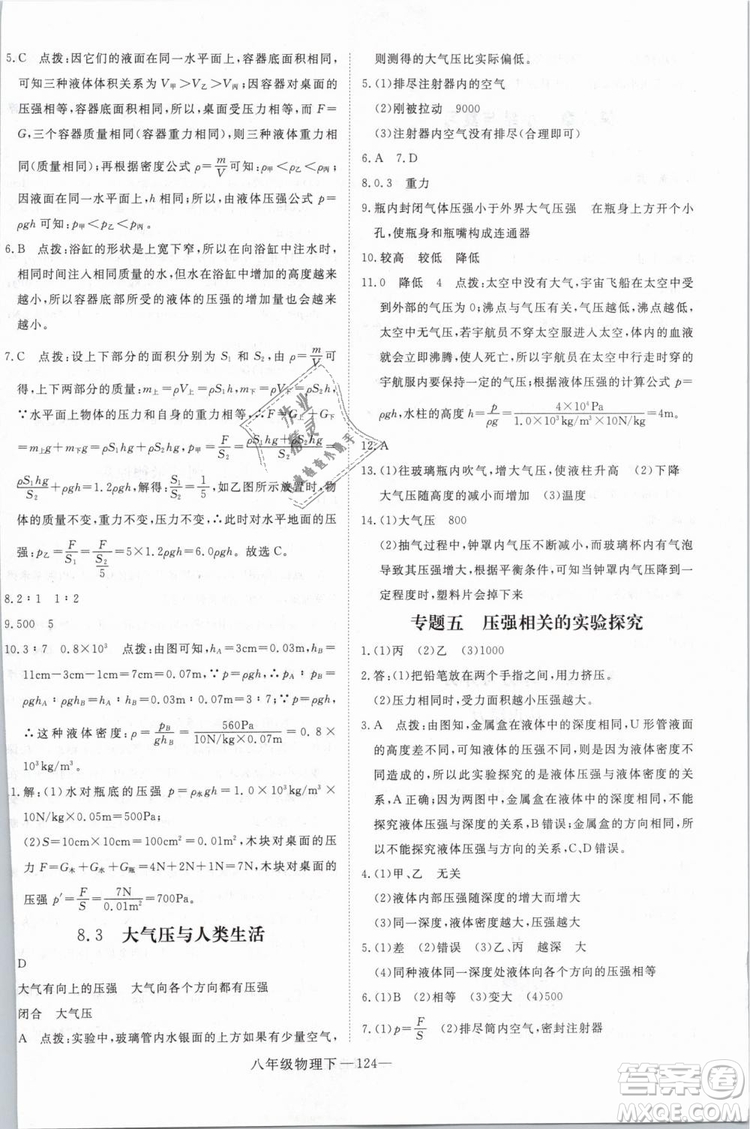 5.C　点拨：因它们的液面在同一水平面上，容器底面积相同，
可知三种液体体积关系为V甲＞V乙＞V丙。容器对桌面的
压强相同，所以，桌面受压力与压强相同，而在水平面上F＝
G，三种容器质量相同，所以三种液体对容器底部的压力相
同（质量相同）。再根据密度公式ρ＝m/V可知ρ甲＜ρ乙＜ρ丙。
因液面在同一水平面上，h相同，根据液体压强公式p＝
ρgh可知：p甲＜p乙＜p丙。
6.B　点拨：浴缸的形状是上宽下窄，在向浴缸中注水时，
相同时间注入相同质量的水，浴缸中增加的高度越来
越小，所以容器底部所受的液体的压强的增加也越来
越小。
7.C　点拨：设上下部分的面积分别为S₁和S₂，由ρ＝m/V可
得，上下两部分的质量为：m上＝ρVₛ＝ρS₁h，m下＝ρS₂h，
∵水平面上物体的压力和自身的重力相等，∴F＝G上＋G下
＝m上g＋m下g＝ρS₁hg＋ρS₂hg，
(ρS₁hg＋ρS₂hg)/S₂＝1.2ρgh，解得：S₁/S₂＝1/5，如乙图倒置时，
物体的质量不变，重力不变，压力不变，此时对水平地面的压
强：p乙＝F/S₁＝F/(S₂/5)＝5×1.2ρgh＝6.0ρgh。故选C。
8.2∶1　1∶2
9.500　5
10.3∶7　0.8×10³　点拨：由图可知，hA＝3cm＝0.03m，hB＝
11cm－3cm－1cm＝7cm＝0.07m，∵p＝ρgh，∴pA∶pB＝
ρghA∶ρghB＝hA∶hB＝0.03m∶0.07m＝3∶7；∵p＝ρgh，
∴这种液体密度：ρ＝pB/ghB＝560Pa/(10N/kg×0.07m)＝0.8×
10³kg/m³。
1.解：(1)水对瓶底的压强：p＝ρ水gh＝1.0×10³kg/m³×
10N/kg×0.05m＝500Pa；
(2)S＝10cm×10cm＝100cm²＝0.01m²，木块对桌面的
压力F＝G木＋G水＋G瓶＝4N＋2N＋1N＝7N，木块对桌面
的压强p′＝F/S＝7N/0.01m²＝700Pa。
8.3　大气压与人类生活
D
大气有向上的压强　大气向各个方向都有压强
闭合　大气压
A　点拨：实验中，玻璃管内水银面的上方如果有少量空气，
则测得的大气压比实际偏低。
5.(1)排尽注射器内的空气
(2)刚被拉动　9000
(3)注射器内空气没有排尽(合理即可)
6.A　7.D
8.0.3　重力
9.瓶内封闭气体压强小于外界大气压强　在瓶身上方开一小
孔，使瓶身和瓶嘴构成连通器
10.较高　较低　降低
11.0　降低　4　点拨：太空中没有大气，宇宙飞船在太空中受
到外部的气压为0；沸点与气压有关，气压越低，沸点越低，
太空中无气压，若宇航员不穿太空服，则宇航员体内的血液
就要沸腾，使人死亡，所以宇航员在太空中行走时穿的
宇航服内要保持一定的气压；根据液体压强的计算公式p＝
ρgh，水柱的高度h＝p/ρg＝4×10⁴Pa/(1.0×10³kg/m³×10N/kg)＝4m。
12.A
13.(1)往玻璃瓶内吹气，大于大气压，使液柱升高　(2)下降
大气压随高度的减小而增大　(3)温度
14.(1)大气压　800
(2)抽气过程中，钟罩内气压不断减小，而玻璃杯内有气泡
导致其气压增大，根据平衡条件，可知当钟罩内气压减小到
一定程度时，塑料片会掉下来
专题五　压强相关的实验探究
1.(1)丙　(2)乙　(3)1000
2.答：(1)把铅笔放在两个手指之间，用力挤压。
(2)压力相同时，受力面积越小压强越大。
3.A　点拨：由图知，金属盒在液体中的深度相同，U形管液面
的高度差不同，可知液体的压强不同，液体的密度不
同造成的，所以此实验探究的是液体压强与液体密度的关
系，A正确；金属盒在液体中的深度和方向都相同，所以不能
探究液体压强与深度的关系，B错误；金属盒的方向相同，所
以不能探究液体压强与方向的关系，C、D错误。
4.(1)甲、乙　无关
(2)液体内部压强随深度的增大而增大
(3)同一深度，液体密度越大，液体压强越大
5.(1)差　(2)错误　(3)乙、丙　越深　越大
(4)同种液体的同一深度，液体向各个方向的压强相等
6.(1)B　(2)相等　(3)变大　(4)500
7.(1)p＝F/S　(2)排尽筒内空气，密封注射器小孔
八年级物理下 —124—
作业
精灵
作业检查小助手
答案圈
MXQE.COM